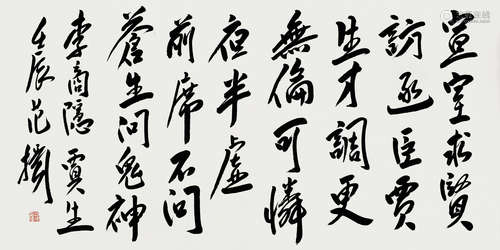 宣室求賢
訪逐臣賈
生才調更
無倫可憐
夜半虛
前席不问
蒼生问鬼神
李商隱賈生
壬辰范揚